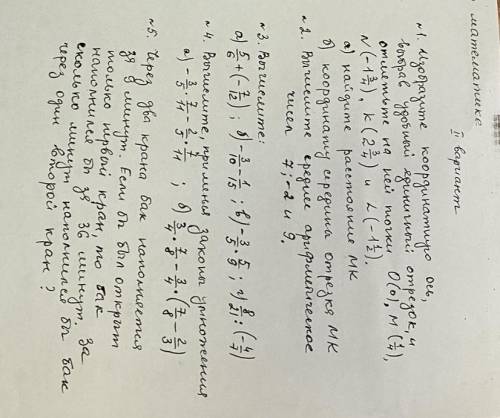 математике
II вариант
№1. Изобразите координатную ось,
выбрав удобный единичный отрезок, и
отметьте на ней точки O(0), M(1/4),
N(-1 3/4), K(2 3/4) и L(-1 1/2).
а) найдите расстояние MK
б) координату середины отрезка MK
№2. Вычислите среднее арифметическое
чисел 7; -2 и 9.
№3. Вычислите:
а) 5/6 + (-7/12); б) -3/10 - 1/15; в) -3/5 · 5/9; г) 8/21 : (-4/7)
№4. Вычислите, применяя законы умножения
а) -3/5 · 7/11 - 2/5 · 7/11; б) 3/4 · 7/8 - 3/4 · (7/8 - 2/3)
№5. Через два крана бак наполняется
за 9 минут. Если бы был открыт
только первый кран, то бак
наполнился бы за 36 минут. За
сколько минут наполнился бы бак
через один второй кран?